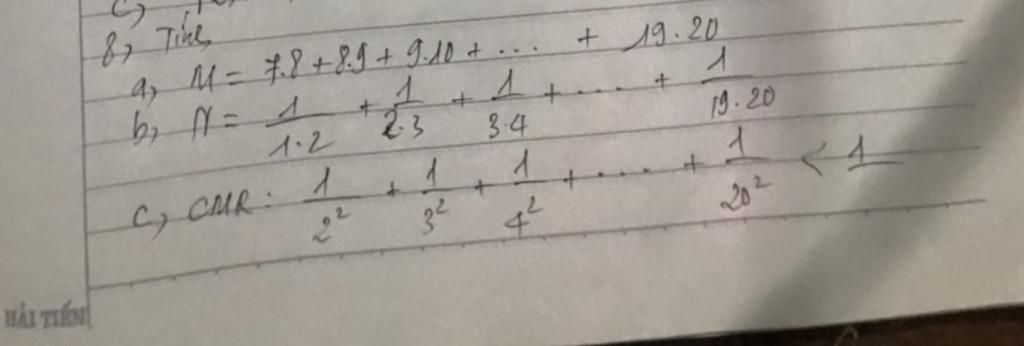 8, Tính
a, M = 7.8 + 8.9 + 9.10 + ... + 19.20
b, N = 1/1.2 + 1/2.3 + 1/3.4 + .... + 1/19.20
c, CMR: 1/2² + 1/3² + 1/4² + .... + 1/20² < 1
HẢI TIẾN